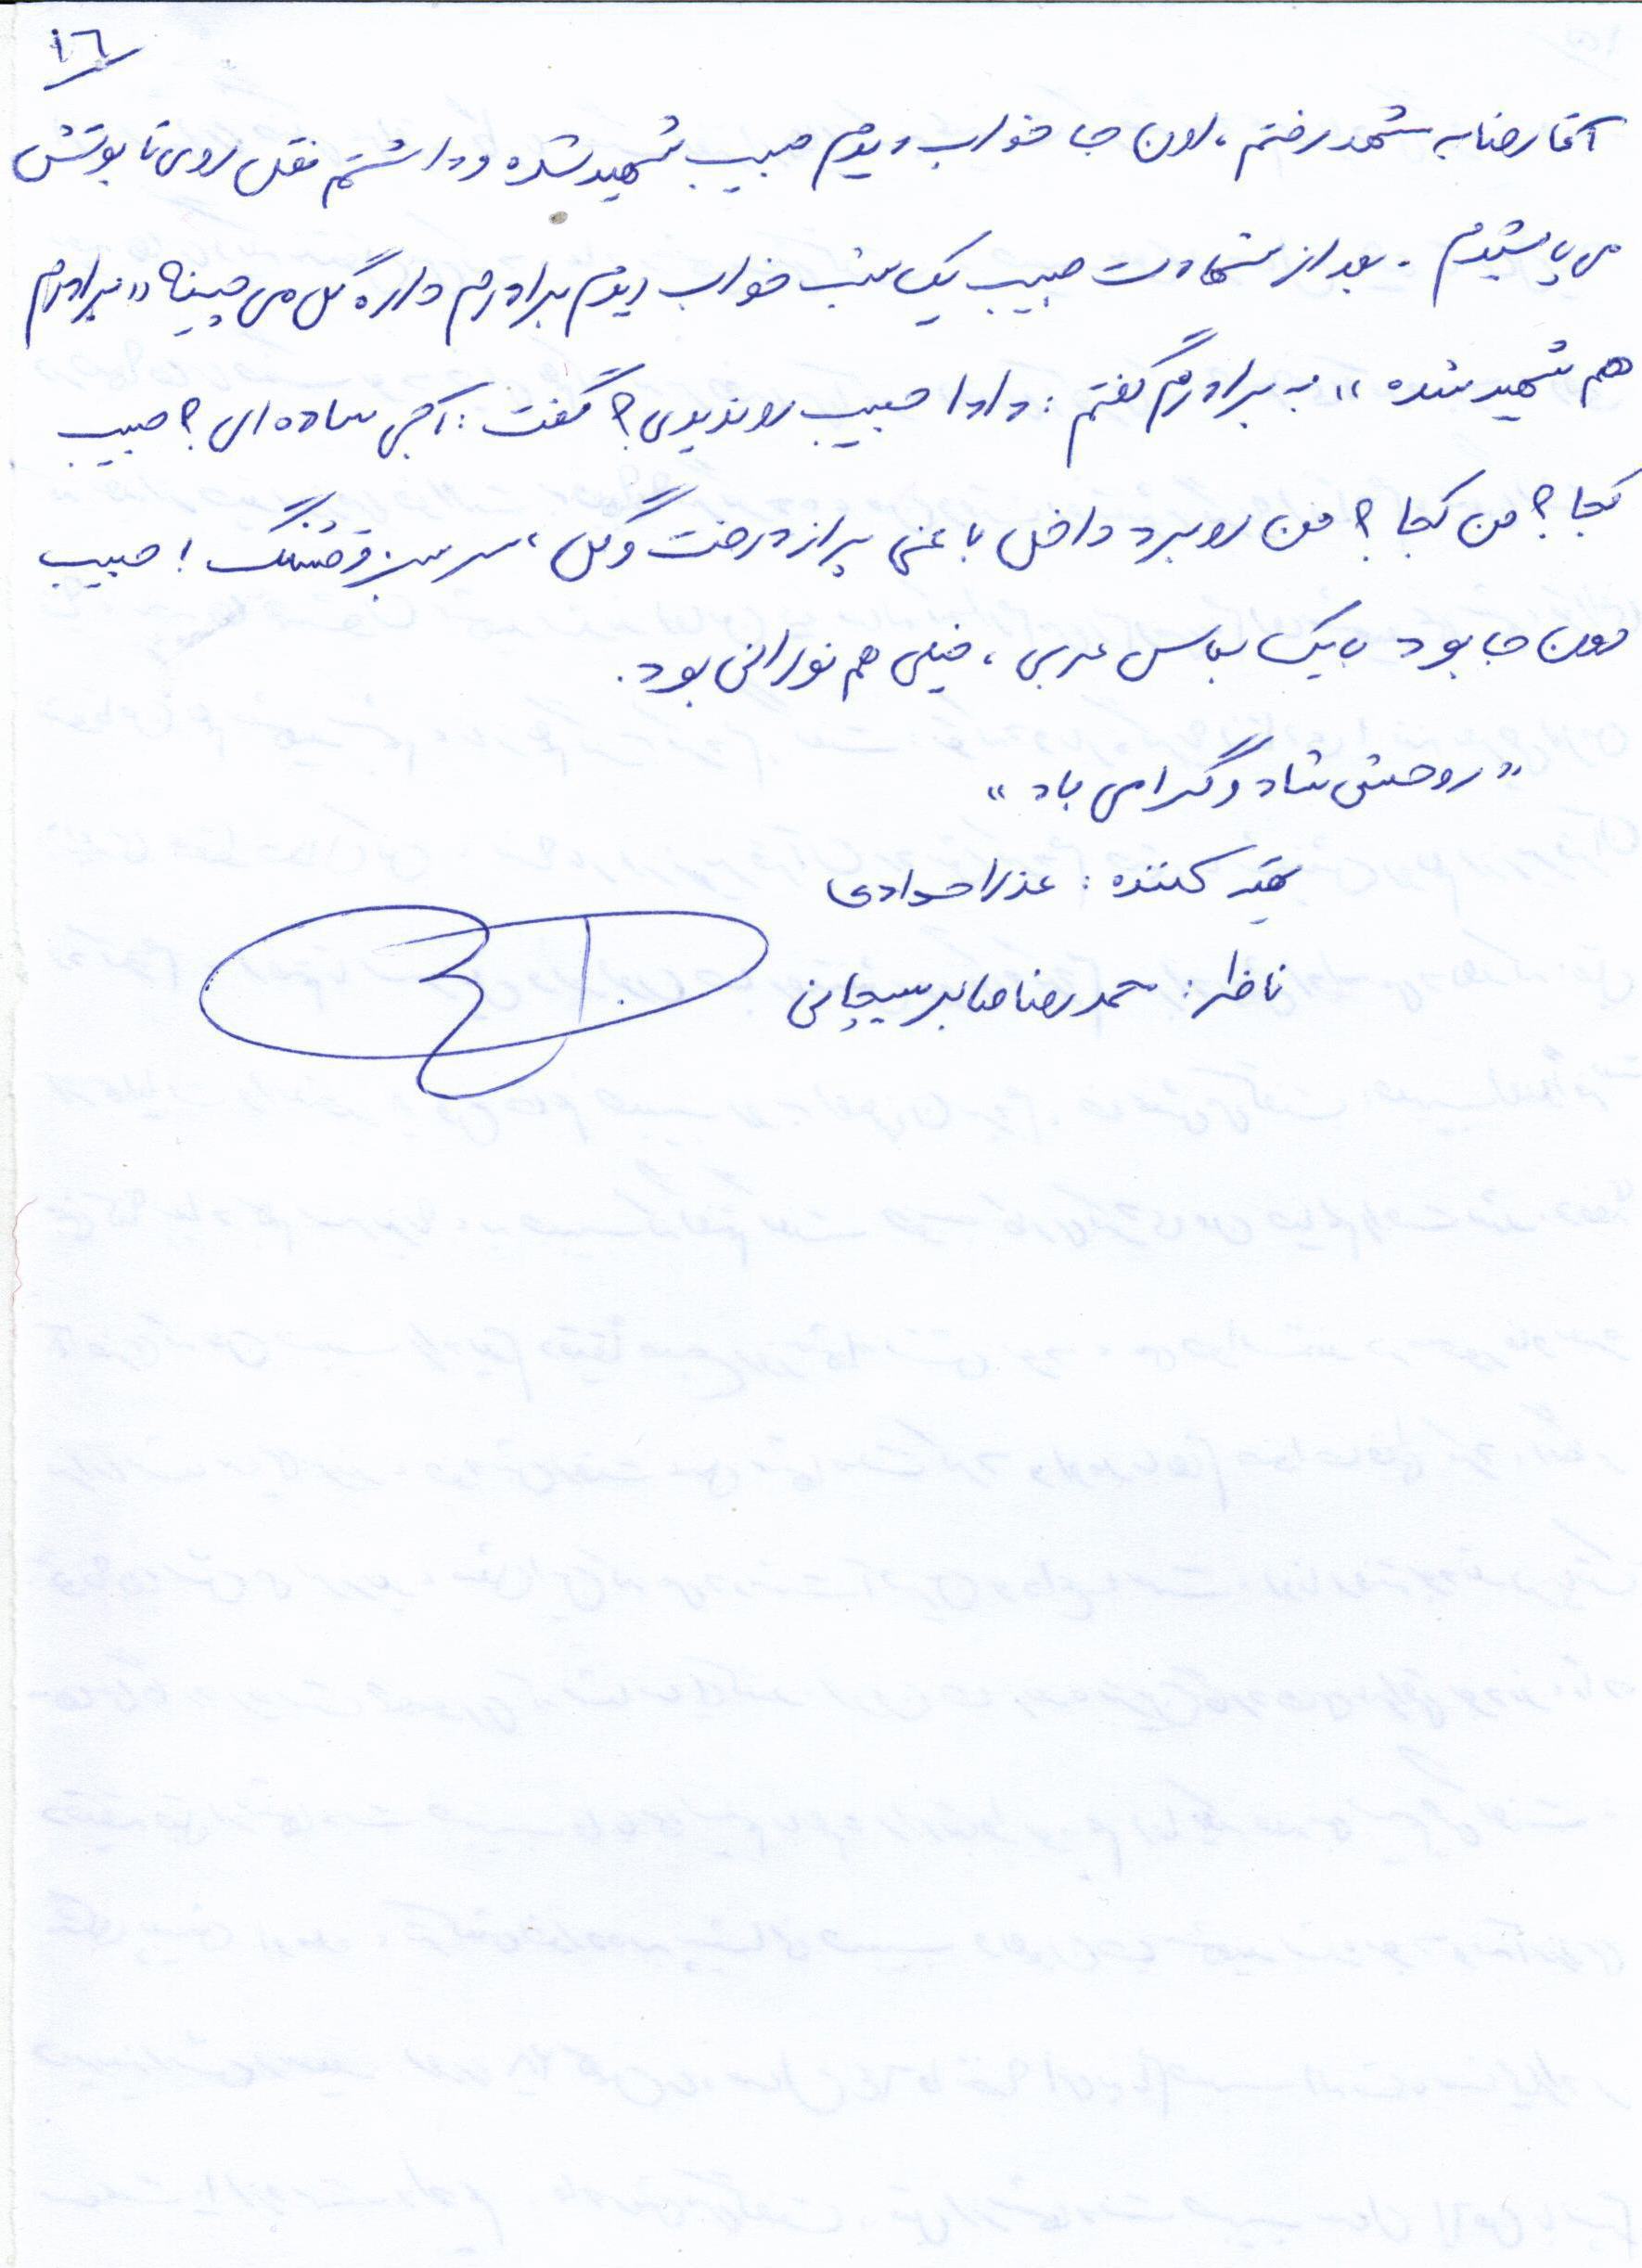 ۱۶
آقا رضا به مشهد رفتم، اون جا خواب دیدم حبیب شهید شده و داشتم نقل روی تابوتش
می پاشیدم. بعد از شهادت حبیب یک شب خواب دیدم برادرم داره گل می چینه «برادرم
هم شهید شده» به برادرم گفتم: دادا حبیب رو ندیدی؟ گفت: آجی ساده ای؟ حبیب
کجا؟ من کجا؟ من رو برد داخل باغی پر از درخت و گل، سرسبز و قشنگ! حبیب
اون جا بود با یک لباس عربی، خیلی هم نورانی بود.
«روحش شاد و گرامی باد»
تهیه کننده: عذرا سوادی
ناظر: محمدرضا صابر سیچانی